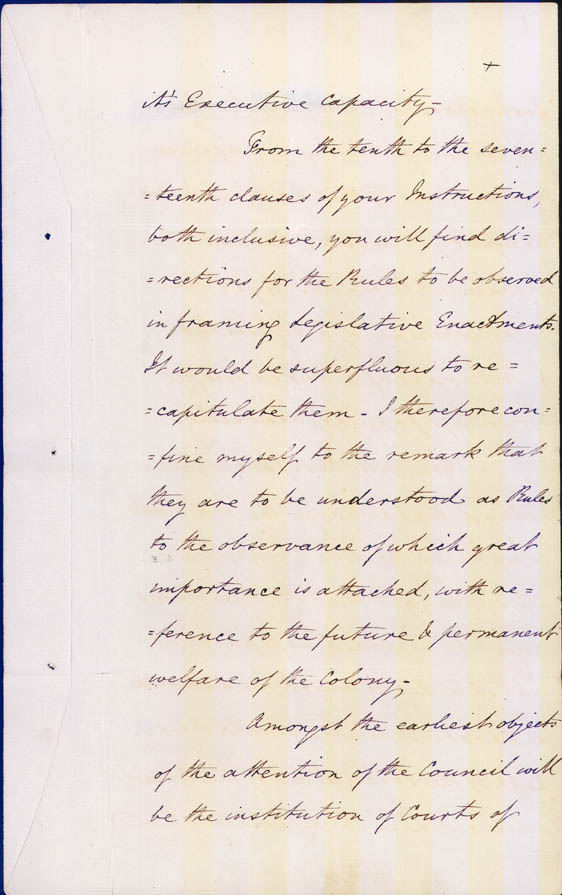 +
it's Executive capacity-
From the tenth to the seven=
=teenth clauses of your Instructions,
both inclusive, you will find di=
=rections for the Rules to be observed
in framing Legislative Enactments.
It would be superfluous to re=
=capitulate them - I therefore con=
=fine myself to the remark that
they are to be understood as Rules
to the observance of which great
importance is attached, with re=
=ference to the future & permanent
welfare of the Colony-
Amongst the earliest objects
of the attention of the Council will
be the institution of Courts of